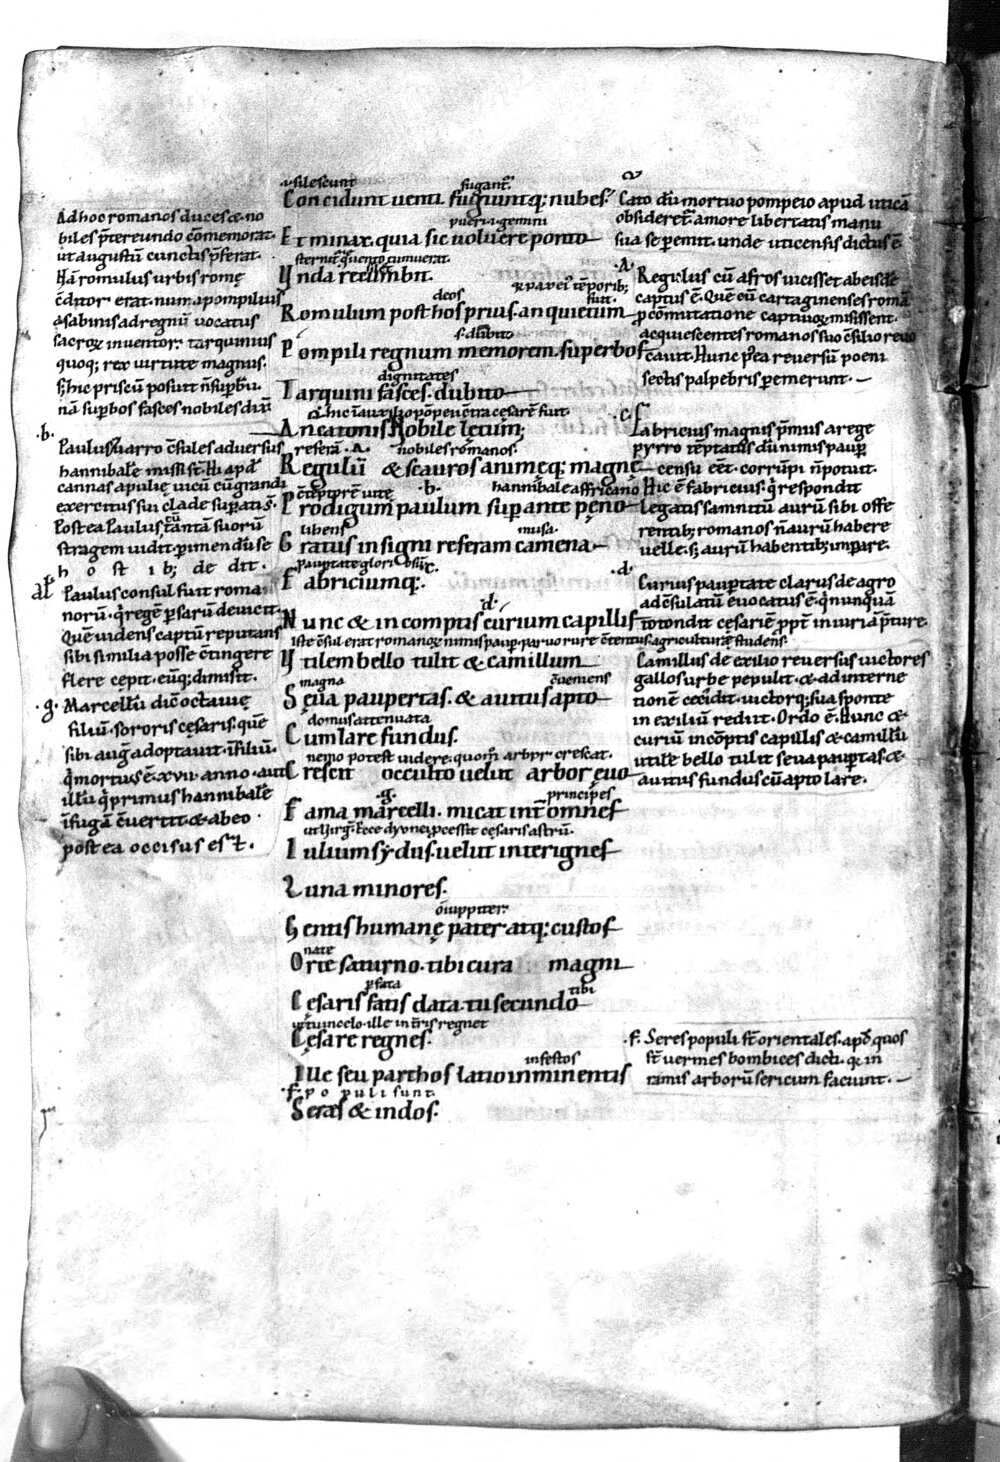 Ad hoc romanos duces & no
biles p̄tereundo c̄memorat.
ut augustū cunctis p̄ferat.
Hā romulus urbis romę
c̄ditor erat. numa pompilius
a sabinis ad regnū vocatus
sacroꝝ inventor. tarquinius
quoq; rex virtute magnus.
nā sup̄bos fasces nobiles dix̄
.b.
Paulus & varro c̄sules adversus
hannibalē missi st̄. Hi apđ
cannas apulię vicū cū grandi
exercitus sui clade sup̄ati s̄.
Postea Paulus tantā suorū
stragem vidit p̄imendū se
h o st ib; de dit.
al̄ Paulus consul fuit roma
norū. q̄ regē p̄sarū devicit.
Quē videns captū reputans
sibi similia posse c̄tingere
flere cępit. eūq; dimisit.
.g. Marcellū dic̄ octavię
filiū. sororis cęsaris. quē
sibi auḡ adoptavit ī filiū.
q̄ mortuus ē xvii. anno. aut
illū q̄ primus hannibalē
ī fugā c̄vertit. & ab eo
postea occisus est.
.i. silescunt fugant̄.
Concidunt venti. fugiuntq; nubes.
pueri gemini
Et minax. quia sic voluere ponto
Ynda recumbit.
deos fuit.
Romulum post hos prius. an quietum
s. dubito
Pompili regnum memorem. superbos
dignitates
Tarquini fasces. dubito
An catonis Nobile lętum;
referā. .A. nobiles romanos.
Regulū & scauros animęq; magnę
.b. hannibale affricano
Prodigum paulum superante pęno
libens musa.
Gratus insigni referam camena
Fabriciumq;.
.d.
Nunc & incomptis curium capillis
Iste c̄sul erat romanoꝝ nimis paup̄. parvo rure c̄tentus agriculturę studens.
Ytilem bello tulit & camillum
magna c̄veniens
Sęva paupertas. & avitus apto
domus attenuata
Cum lare fundus.
nemo potest videre. quom̄ arbor crescat.
Crescit occulto velut arbor ęvo
.g. principes
Fama marcelli. micat inť omnes
Iulium sydus. velut inter ignes
Luna minores.
o iuppiter.
Gentis humanę pater atq; custos
nate
Orte saturno. tibi cura magni
p̄ fata tibi
Cęsaris fatis data. tu secundo
ut tu in cęlo. ille in t̄ris regnet
Cęsare regnes.
infestos
Ille seu parthos latio inminentis
.f. p o p u l i s u n t.
Seras & indos.
Cato dū mortuo pompeio apud utica
obsideret̄. amore libertatis manu
sua se p̄emit. unde uticensis dictus ē
.A.
Regulus cū afros vicisset ab eisdē
captus ē. Quē cū cartaginenses romā
p̄ c̄mutatione captivoꝝ misissent.
acquiescentes romanos suo c̄silio revo
cavit. Hunc p̄ea reversū poeni
sectis palpebris p̄emerunt.
.c. Fabricius magnus p̄mus a rege
pyrro tēptatus dū nimis paup̄
census eēt. corrūpi n̄ potuit.
Hic ē fabricius. q̄ respondit
legatis samnitū aurū sibi offe
rentib; romanos n̄ aurū habere
velle. s; aurū habentib; imp̄are.
.d.
Curius paup̄tate clarus de agro
ad c̄sulatū evocatus ē. q̄ nunquā
totondit cesariē ppt̄ iniuriā p̄ture.
Camillus de exilio reversus victores
gallos urbe pepulit. & ad interne
tionē cecidit. victorq; sua sponte
in exiliū rediit. Ordo ē. Hunc &
curiū incōptis capillis & camillū
utilē bello tulit seva paup̄tas. &
avitus fundus cū apto lare.
.f. Seres populi st̄ orientales. apđ quos
st̄ vermes bombices dicti. q̄ in
ramis arborū sericum faciunt.